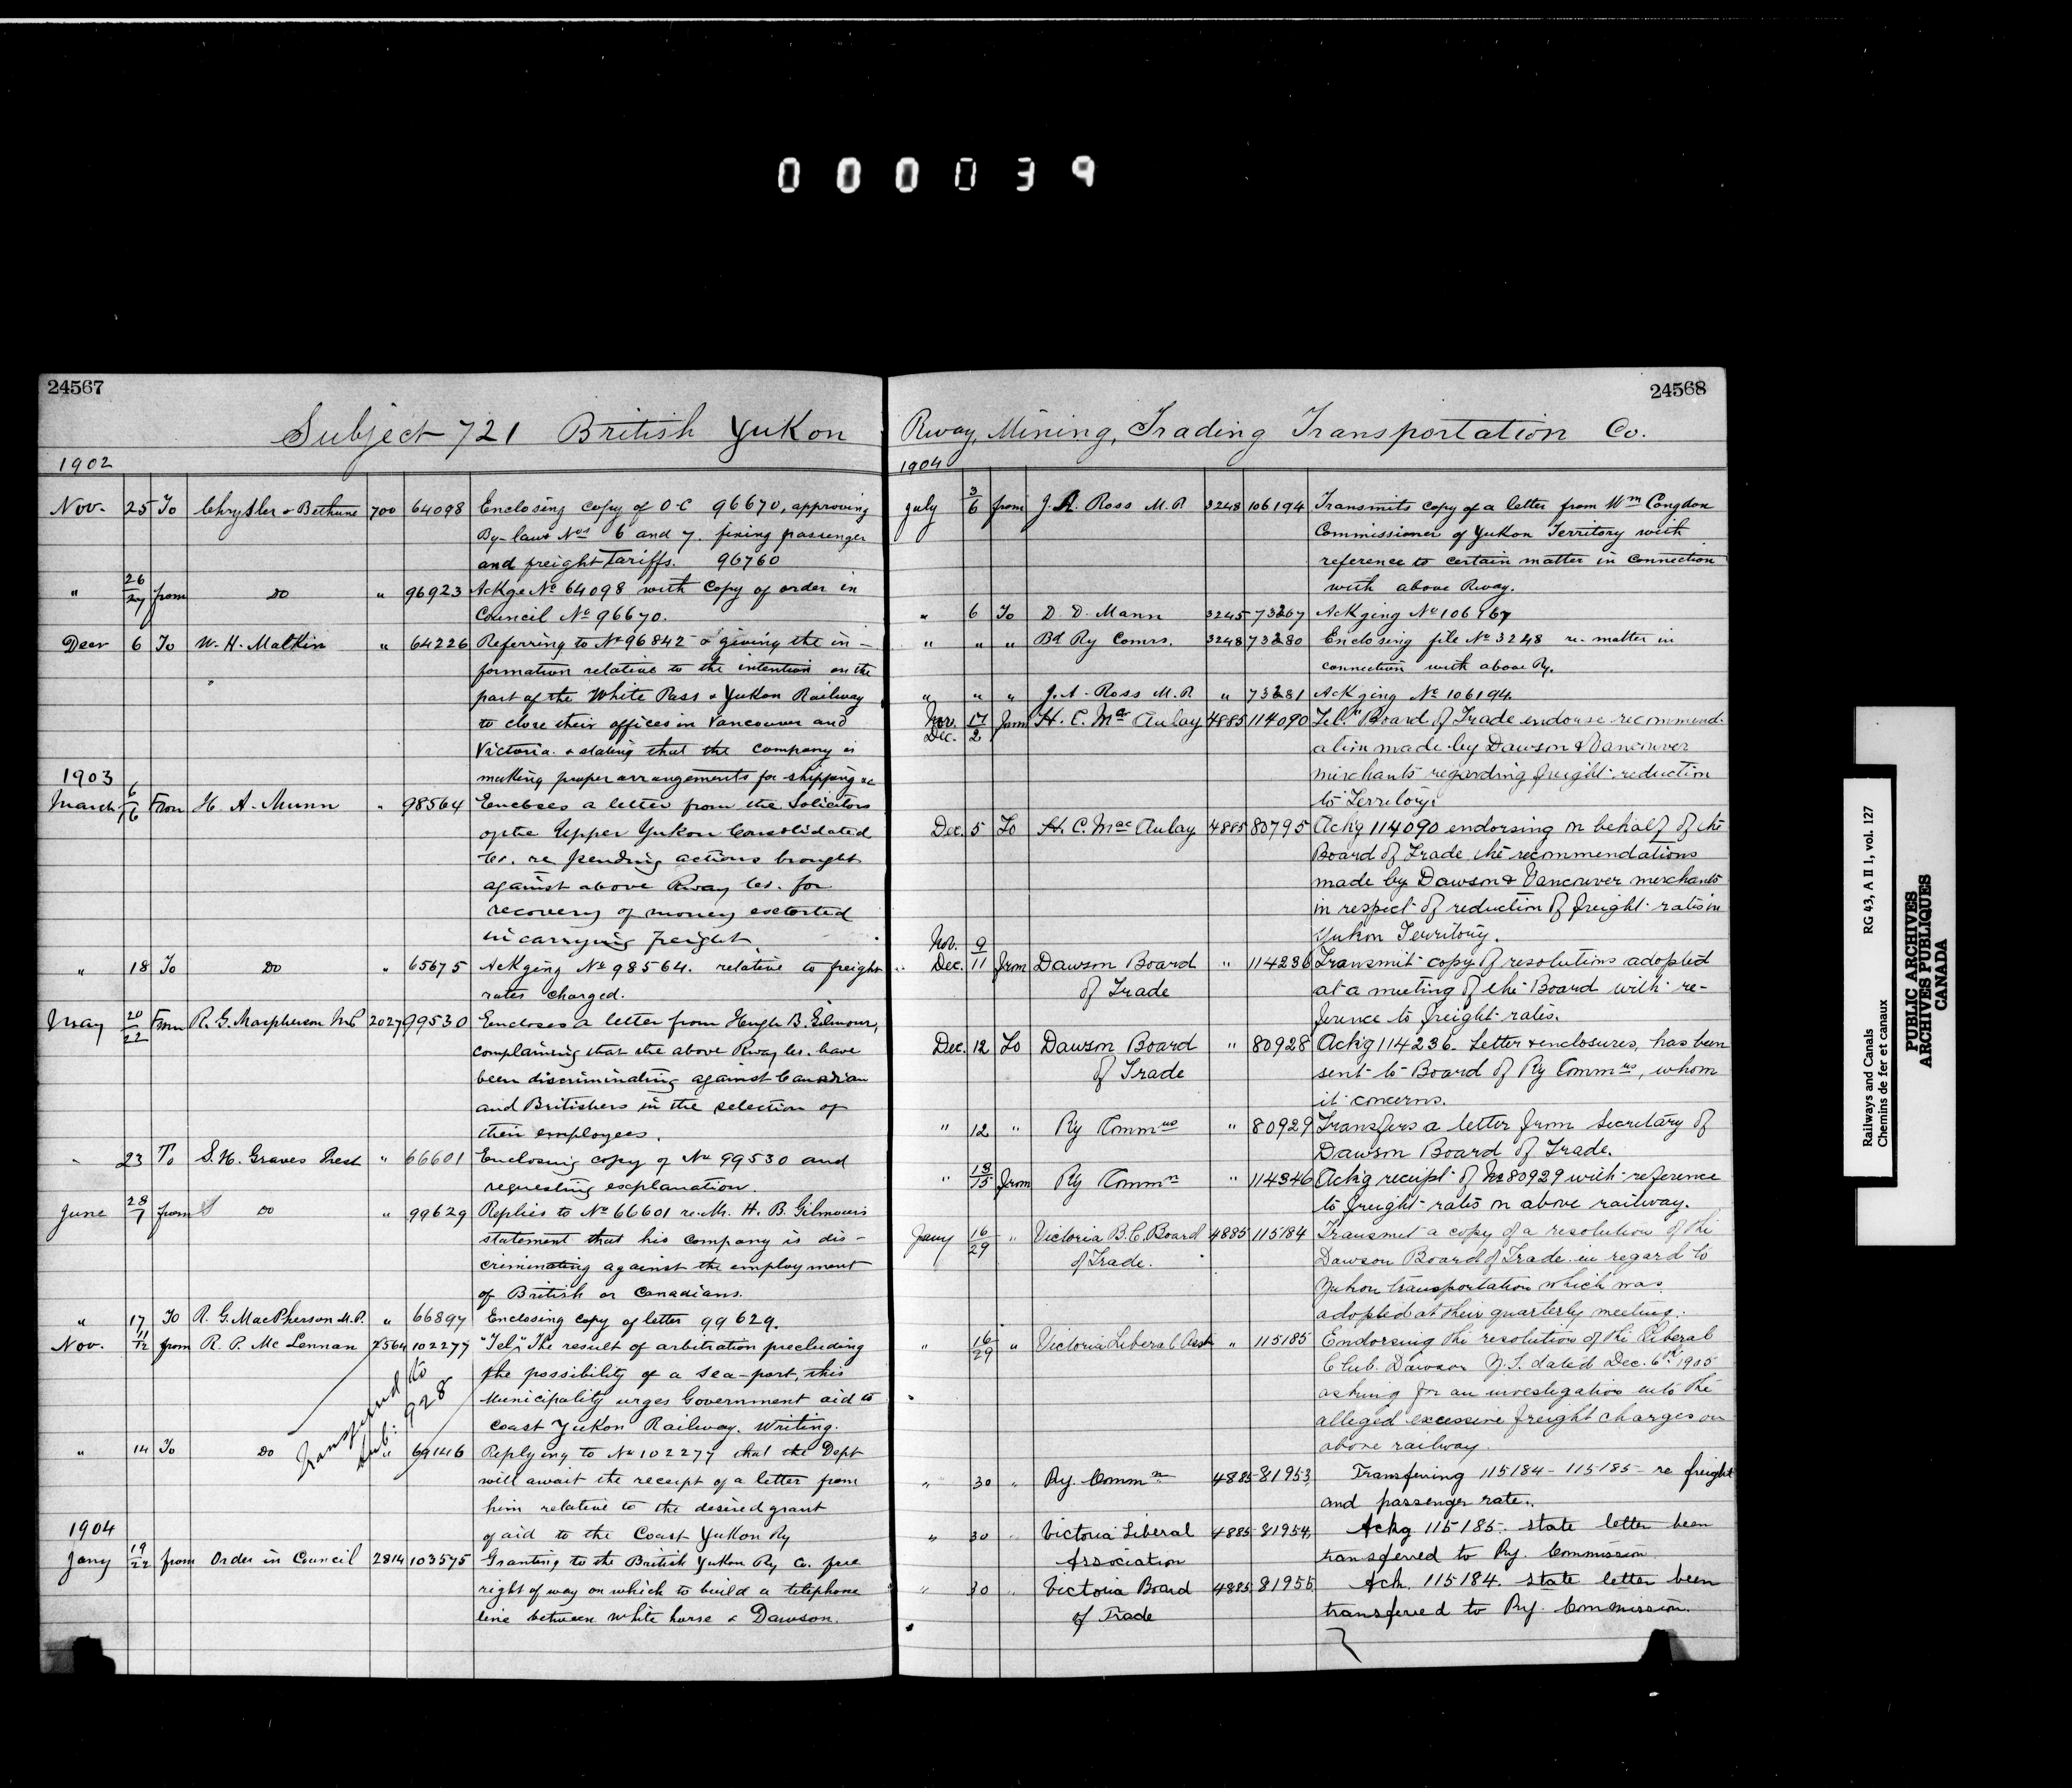 0 0 0 0 3 9
24567
Subject 721 British Yukon
1902
Nov. 25 To Chrysler & Bethune 700 64098 Enclosing copy of O-C 96670, approving
By-laws Nos 6 and 7. fixing passenger
and freight Tariffs. 96760
" 26/27 from Do " 96923 Ackge No 64098 with copy of order in
Council No 96670.
Decr 6 To W. H. Malkin " 64226 Referring to No 96842 & giving the in-
formation relative to the intention on the
part of the White Pass & Yukon Railway
to close their offices in Vancouver and
Victoria. & stating that the company is
making proper arrangements for shipping &c
1903
March 6/16 From H. A. Munn " 98564 Encloses a letter from the Solicitors
of the Upper Yukon Consolidated
Co. re pending actions brought
against above Rway Co. for
recovery of money extorted
in carrying freight.
" 18 To Do " 65675 Ackging No 98564. relative to freight
rates charged.
May 20/22 From R. G. Macpherson MP 2027 99530 Encloses a letter from Hugh B. Gilmour,
complaining that the above Rway Co. have
been discriminating against Canadian
and Britishers in the selection of
their employees.
" 23 To S. H. Graves Prest " 66601 Enclosing copy of No 99530 and
requesting explanation.
June 28/7 from Do " 99629 Replies to No 66601 re. Mr. H. B. Gilmour's
statement that his company is dis-
criminating against the employment
of British or Canadians.
" 17 To R. G. MacPherson M.P. " 66897 Enclosing copy of letter 99629.
Nov. 11/12 from R. P. McLennan 2564 102277 "Tel," The result of arbitration precluding
the possibility of a sea-port, this
Municipality urges Government aid to
Coast Yukon Railway. Writing.
Transferred to
Sub: 928
" 14 To Do " 69146 Replying to No 102277 that the Dept
will await the receipt of a letter from
him relative to the desired grant
of aid to the Coast Yukon Ry
1904
Jany 19/22 from Order in Council 2814 103575 Granting to the British Yukon Ry Co. free
right of way on which to build a telephone
line between White horse & Dawson.
24568
Rway, Mining, Trading Transportation Co.
1904
July 3/6 from J. A. Ross M.P. 3248 106194 Transmits copy of a letter from Wm Congdon
Commissioner of Yukon Territory with
reference to certain matter in connection
with above Rway.
" 6 To D. D. Mann 3245 73267 Ackging No 106167
" " " Bd Ry Comrs. 3248 73280 Enclosing file No 3248 re. matter in
connection with above Ry.
" " " J. A. Ross M.P. " 73281 Ackging No 106194.
Nov. 17 Dec. 2 from H. C. MacAulay 4885 114090 Board of Trade endorse recommend-
ation made by Dawson & Vancouver
merchants regarding freight reduction
to Territory.
Dec. 5 To H. C. MacAulay 4885 80795 Ackg 114090 endorsing on behalf of the
Board of Trade the recommendations
made by Dawson & Vancouver merchants
in respect of reduction of freight rates in
Yukon Territory.
Nov. 9
Dec. 11 from Dawson Board " 114236 Transmit copy of resolutions adopted
of Trade at a meeting of the Board with re-
ference to freight rates.
Dec. 12 To Dawson Board " 80928 Ackg 114236. Letter & enclosures, has been
of Trade sent to Board of Ry Commrs, whom
it concerns.
" 12 " Ry Commrs " 80929 Transfers a letter from Secretary of
Dawson Board of Trade.
" 13/15 from Ry Commn " 114346 Ackg receipt of No 80929 with reference
to freight rates on above railway.
Jany 16/29 " Victoria B.C. Board 4885 115184 Transmit a copy of a resolution of the
of Trade. Dawson Board of Trade in regard to
Yukon transportation which was
adopted at their quarterly meeting.
" 16/29 " Victoria Liberal Assn " 115185 Endorsing the resolution of the Liberal
Club. Dawson Y.T. dated Dec. 6th 1905
asking for an investigation into the
alleged excessive freight charges on
above railway.
" 30 " Ry. Commn 4885 81953 Transfering 115184 - 115185 - re freight
and passenger rate.
" 30 " Victoria Liberal 4885 81954 Ackg 115185. state letter been
Association transferred to Ry. Commission
" 30 " Victoria Board 4885 81955 Ack. 115184. state letter been
of Trade transferred to Ry. Commission.
Railways and Canals RG 43, A II 1, vol. 127
Chemins de fer et canaux
PUBLIC ARCHIVES
ARCHIVES PUBLIQUES
CANADA